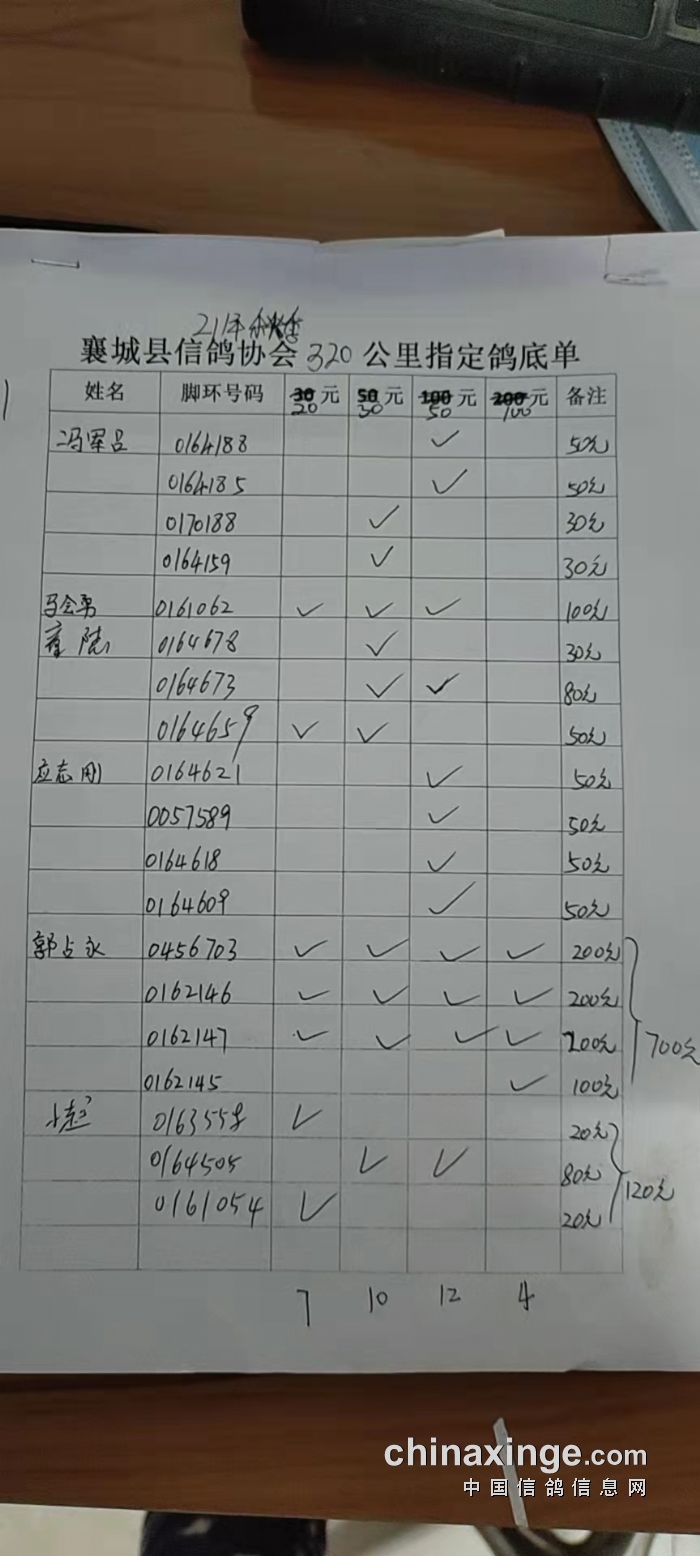 21年秋季
襄城县信鸽协会320公里指定鸽底单
姓名 脚环号码 30 20元 50 30元 100 50元 200 100元 备注
冯军吕 0164188 ✓ 50元
0164185 ✓ 50元
0170188 ✓ 30元
0164159 ✓ 30元
马会勇 0161062 ✓ ✓ ✓ 100元
0164678 ✓ 30元
0164673 ✓ ✓ 80元
0164659 ✓ ✓ 50元
应志刚 0164621 ✓ 50元
0057589 ✓ 50元
0164618 ✓ 50元
0164609 ✓ 50元
郭占永 0456703 ✓ ✓ ✓ ✓ 200元
0162146 ✓ ✓ ✓ ✓ 200元
0162147 ✓ ✓ ✓ ✓ 200元 700元
0162145 ✓ 100元
小赵 0163558 ✓ 20元
0164505 ✓ ✓ 80元 120元
0161054 ✓ 20元
7 10 12 4
chinaxinge.com
中国信鸽信息网